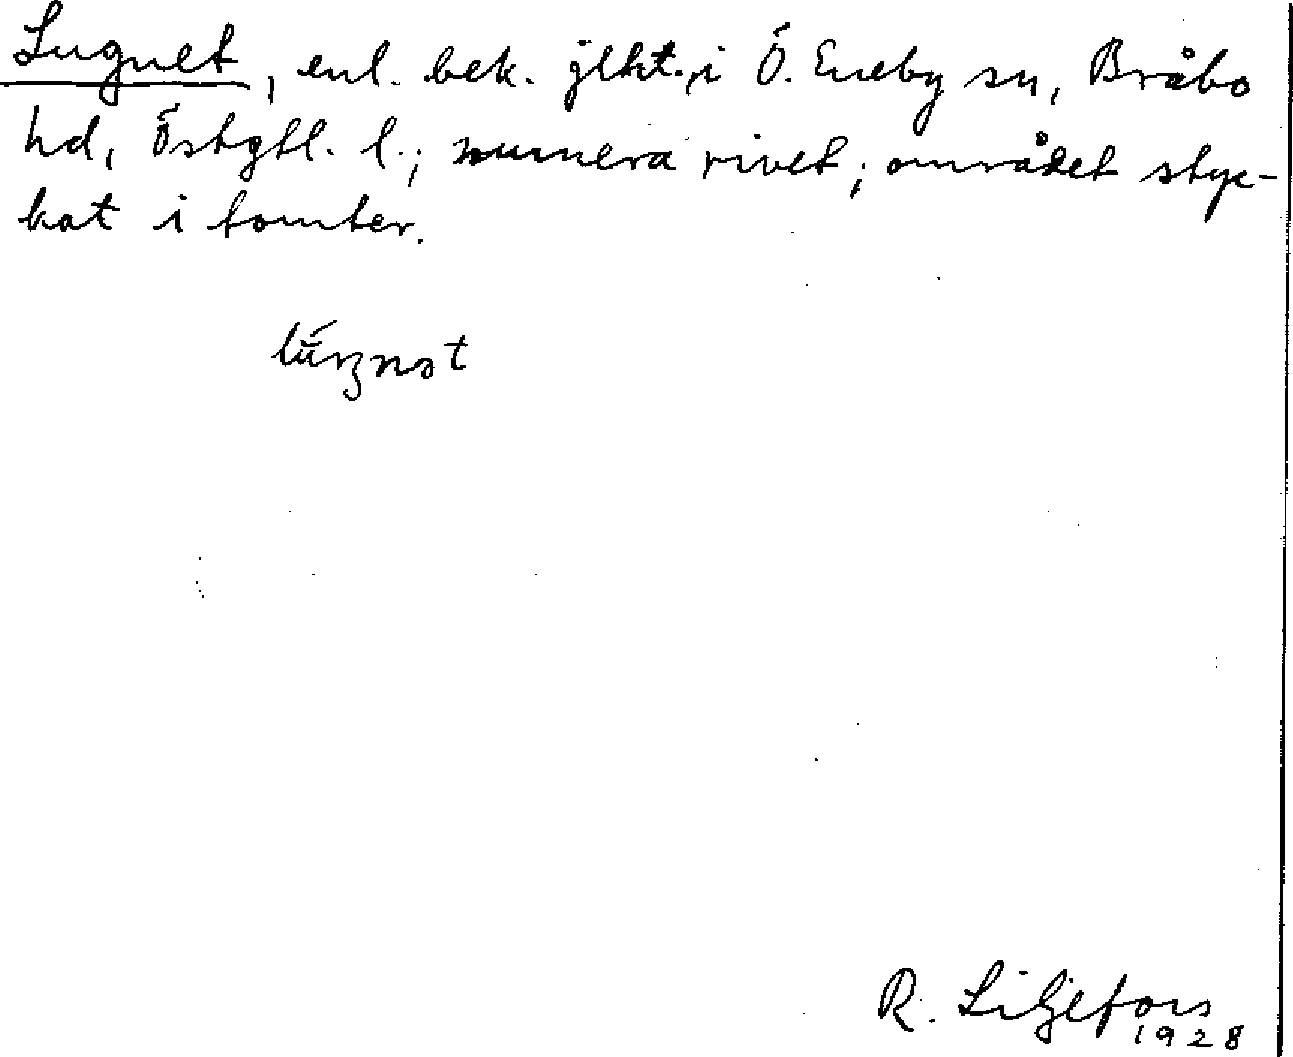 Lugnet, enl. bek. jlht. i Ö. Eneby sn, Bråbo
hd, Östgtl. l.; numera rivet; området styc-
kat i tomter.
R. Liljefors
1928